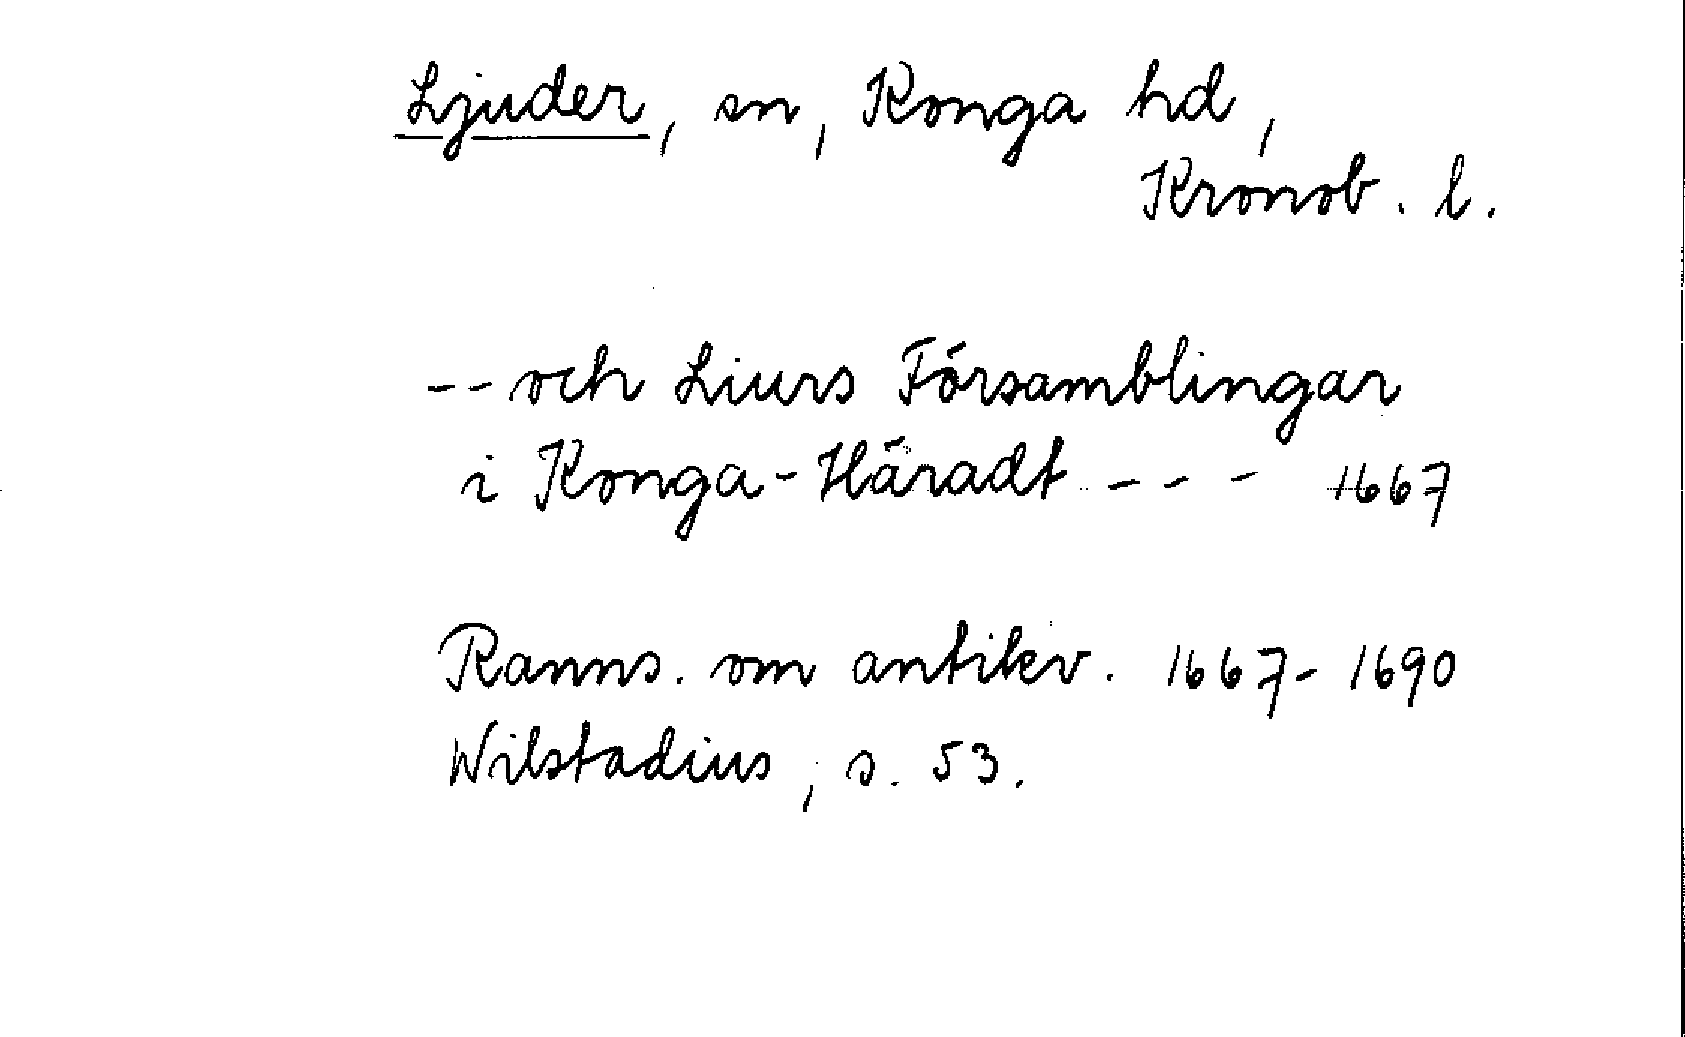 Ljuder, sn, Konga hd,
Kronob. l.
-- och Liurs Församblingar
i Konga-Häradt --- 1667
Ranns. om antikv. 1667-1690
Wilstadius, s. 53.